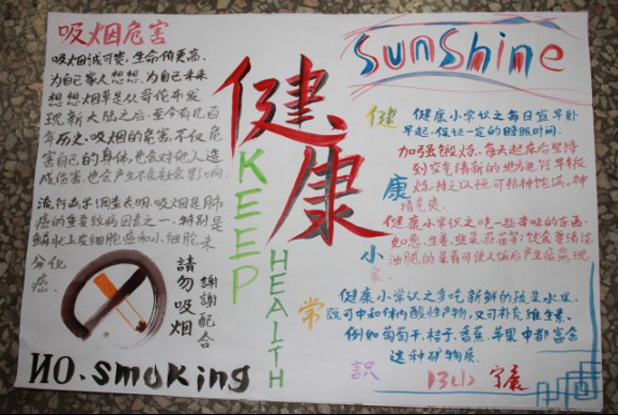 吸烟危害
吸烟诚可贵,生命价更高.
为自己家人想想,为自己未来
想想.烟草是从哥伦布发
现新大陆之后,至今有几百
年历史.吸烟的危害,不仅危
害自己的身体,也会对他人造
成伤害,也会产生不良社会影响.
流行病学调查表明,吸烟是肺
癌的重要致病因之一,特别是
鳞状上皮细胞癌和小细胞未
分化
癌.
請勿吸烟
謝謝配合
NO.smoking
健康
KEEP
HEALTH
Sunshine
健康小常识
健康小学识之每日宜早卧
早起.保证一定的睡眠时间.
加强锻炼.每天起床后坚持
到空气清新的地方进行早锻
炼.持之以恒可精神饱满,神
清气爽.
健康小学识之吃一些辛味的东西.
如葱.生姜.韭菜.蒜苗等;饮食要清淡
油腻的菜肴可使人饭后产生疲惫现
象.
健康小学识之多吃新鲜的蔬菜水果.
既可中和体内酸性产物,又可补充维生素.
例如葡萄干.桔子.香蕉.苹果中都富含
这种矿物质.